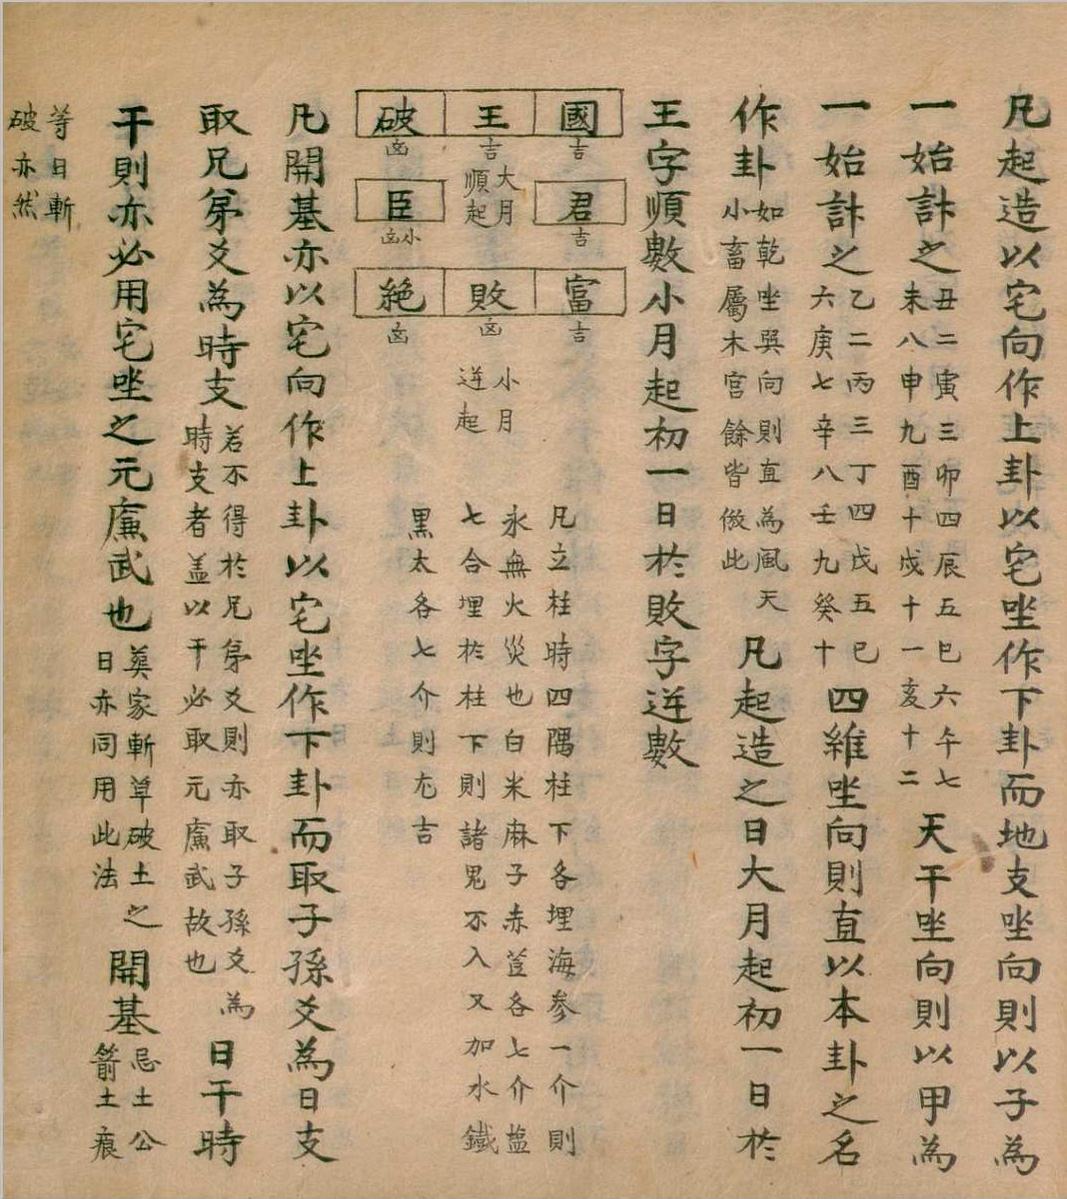 凡起造以宅向作上卦以宅坐作下卦而地支坐向則以子為
一始計之丑二寅三卯四辰五巳六午七
未八申九酉十戌十一亥十二
天干坐向則以甲為
一始計之乙二丙三丁四戊五己
六庚七辛八壬九癸十
四維坐向則直以本卦之名
作卦如乾坐巽向則直為風天
小畜屬木宮餘皆倣此
凡起造之日大月起初一日於
王字順數小月起初一日於敗字逆數
國吉
王吉
破凶
大月
順起
君吉
臣小凶
富吉
敗凶
絕凶
小月
逆起
凡立柱時四隅柱下各埋海參一介則
永無火災也白米麻子赤荳各七介塩
七合埋於柱下則諸鬼不入又加水鐵
黑太各七介則尤吉
凡開基亦以宅向作上卦以宅坐作下卦而取子孫爻為日支
取兄弟爻為時支若不得於兄弟爻則亦取子孫爻為
時支者盖以干必取元廉武故也
日干時
干則亦必用宅坐之元廉武也葬家斬草破土之
日亦同用此法
開基忌土公
箭土痕
等日斬
破亦然